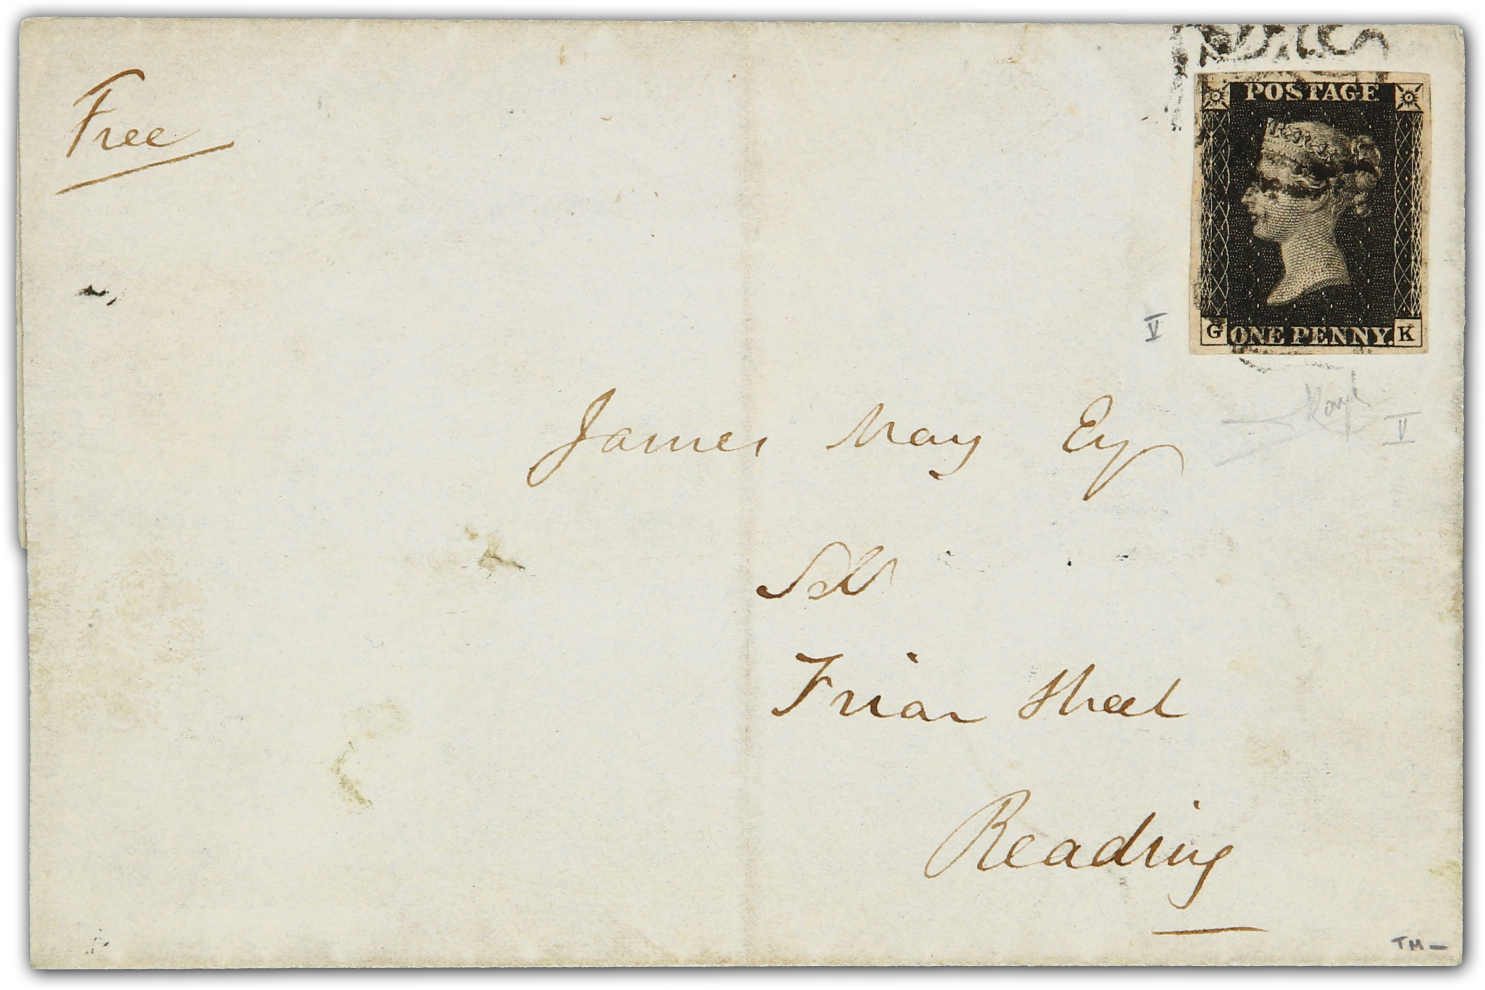 Free
POSTAGE
G ONE PENNY. K
V
V
James May Esq
Solr
Friar Street
Reading
TM—